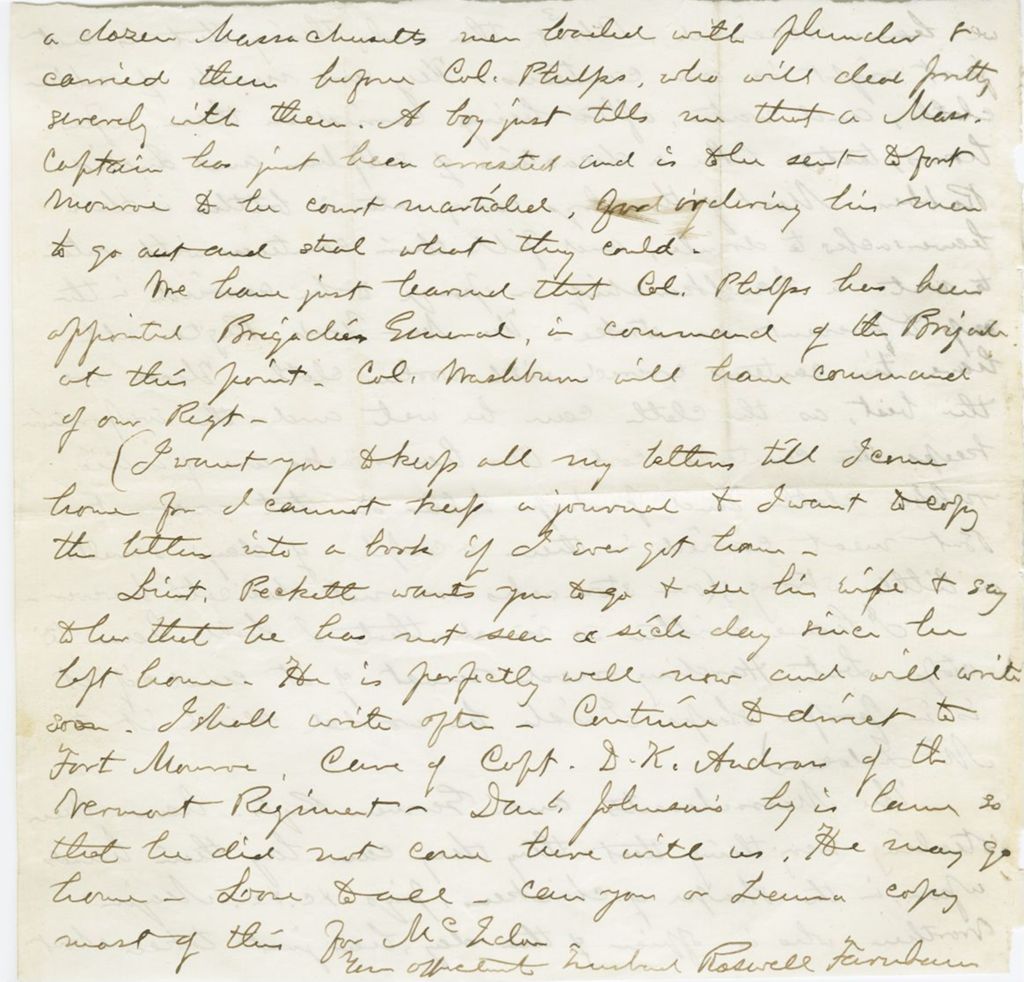 a dozen Massachusetts men loaded with plunder &
carried them before Col. Phelps, who will deal pretty
severely with them. A boy just tells me that a Mass.
Captain has just been arrested and is to be sent to fort
Monroe to be court martialed, for ordering his men
to go out and steal what they could.
We have just learned that Col. Phelps has been
appointed Brigadier General, in command of the Brigade
at this point - Col. Washburn will have command
of our Regt -
(I want you to keep all my letters till I come
home for I cannot keep a journal & I want to copy
the letters into a book if I ever get home -
Lieut. Peckett wants you to go & see his wife & say
to her that he has not seen a sick day since he
left home - He is perfectly well now and will write
soon - I shall write often - Continue to direct to
Fort Monroe, Care of Capt. D. K. Andross of the
Vermont Regiment - Danl. Johnson's leg is lame so
that he did not come here with us. He may go
home - Love to all - Can you or Laura copy
most of this for McIndoe
Your affectionate Husband Roswell Farnham